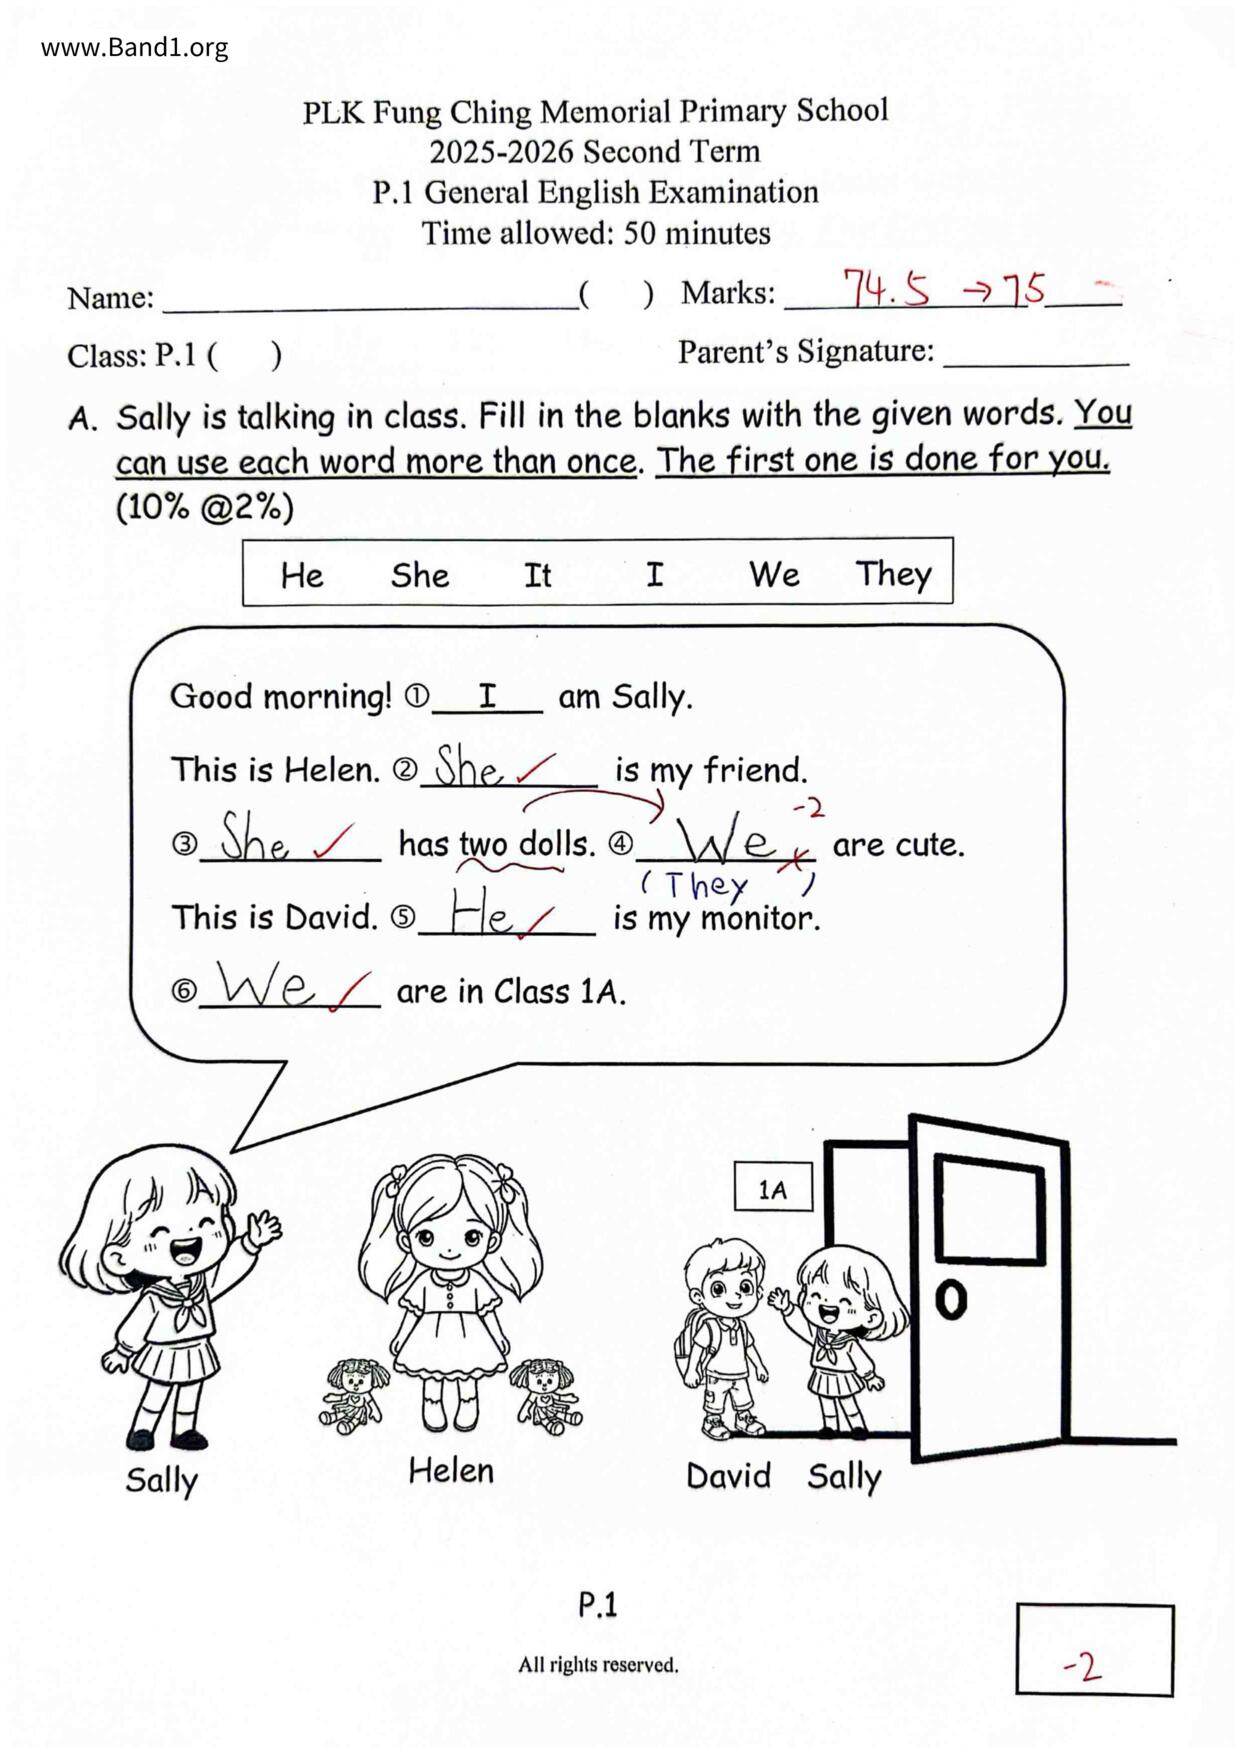 www.Band1.org
PLK Fung Ching Memorial Primary School
2025-2026 Second Term
P.1 General English Examination
Time allowed: 50 minutes
Name: ______________________( ) Marks: 74.5 → 75
Class: P.1 ( ) Parent's Signature: ___________
A. Sally is talking in class. Fill in the blanks with the given words. You
can use each word more than once. The first one is done for you.
(10% @2%)
He She It I We They
Good morning! ① I am Sally.
This is Helen. ② She ✓ is my friend.
-2
③ She ✓ has two dolls. ④ We ✗ are cute.
( They )
This is David. ⑤ He ✓ is my monitor.
⑥ We ✓ are in Class 1A.
1A
Sally Helen David Sally
P.1
All rights reserved.
-2